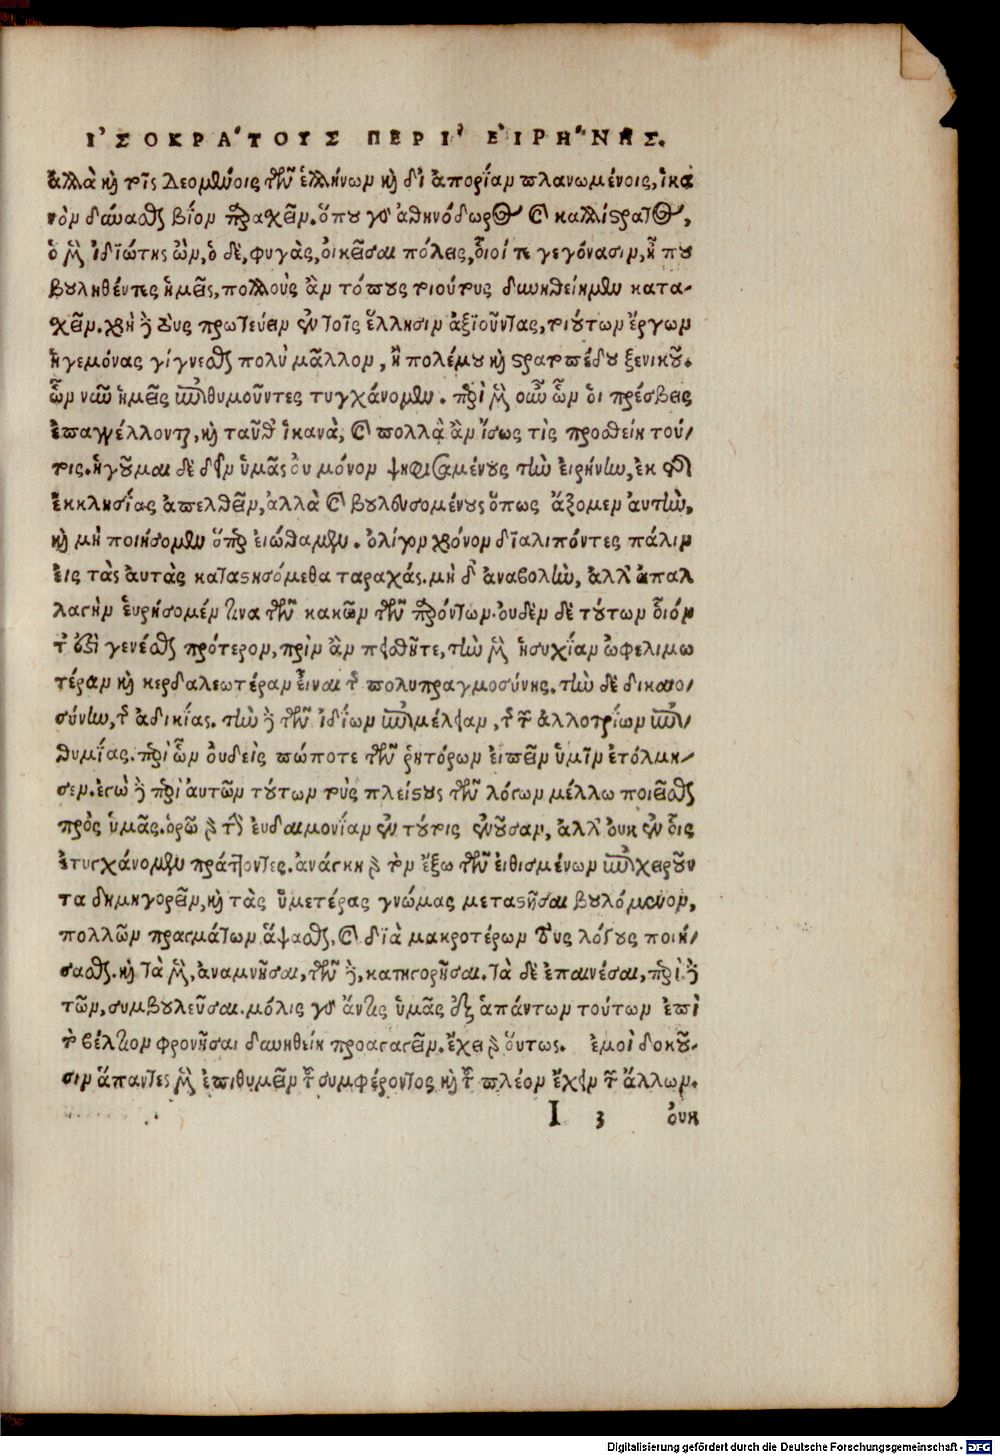 ἸΣΟΚΡΆΤΟΥΣ ΠΕΡῚ ἘΙΡΉΝΗΣ.
ἀλλὰ καὶ τοῖς δεομένοις τῶν ἑλλήνων καὶ δι ἀπορίαν πλανωμένοις, ἱκα
νὸν δύνασθαι βίον παρασχεῖν. ὅπου γὰρ ἀθηνόδωρος καὶ καλλίστρατος,
ὁ μὲν ἰδιώτης ὢν, ὁ δὲ, φυγὰς, οἰκεῖσαι πόλεις, οἷοί τε γεγόνασιν, ἦ που
βουληθέντες ἡμεῖς, πολλοὺς ἂν τόπους τοιούτους δυνηθείημεν κατα-
σχεῖν. χρὴ δὲ τοὺς πρωτεύειν ἐν τοῖς ἕλλησιν ἀξιοῦντας, τοιούτων ἔργων
ἡγεμόνας γίγνεσθαι πολὺ μᾶλλον, ἢ πολέμου καὶ στρατοπέδου ξενικοῦ.
ὧν νῦν ἡμεῖς ἐπιθυμοῦντες τυγχάνομεν. περὶ μὲν οὖν ὧν οἱ πρέσβεις
ἐπαγγέλλονται, καὶ ταῦθ' ἱκανὰ, καὶ πολλὰ ἂν ἴσως τὶς προσθείη τού/
τοις. ἡγοῦμαι δὲ δεῖν ὑμᾶς οὐ μόνον ψηφισαμένους τὴν εἰρήνην, ἐκ τῆς
ἐκκλησίας ἀπελθεῖν, ἀλλὰ καὶ βουλευσομένους ὅπως ἄξομεν αὐτὴν,
καὶ μὴ ποιήσομεν ὅπερ εἰώθαμεν. ὀλίγον χρόνον διαλιπόντες πάλιν
εἰς τὰς αὐτὰς καταστησόμεθα ταραχάς. μὴ δ' ἀναβολὴν, ἀλλ' ἀπαλ
λαγὴν εὑρήσομέν τινα τῶν κακῶν τῶν παρόντων. οὐδὲν δὲ τούτων οἷόν
τ' ἐστὶ γενέσθαι πρότερον, πρὶν ἂν πεισθῆτε, τὴν μὲν ἡσυχίαν ὠφελιμω
τέραν καὶ κερδαλεωτέραν εἶναι τῆς πολυπραγμοσύνης. τὴν δὲ δικαιο/
σύνην, τῆς ἀδικίας. τὴν δὲ τῶν ἰδίων ἐπιμέλειαν, τῆς τῶν ἀλλοτρίων ἐπι/
θυμίας. περὶ ὧν οὐδεὶς πώποτε τῶν ῥητόρων εἰπεῖν ὑμῖν ἐτόλμη/
σεν. ἐγὼ δὲ περὶ αὐτῶν τούτων τοὺς πλείστους τῶν λόγων μέλλω ποιεῖσθαι
πρὸς ὑμᾶς. ὁρῶ γὰρ τὴν εὐδαιμονίαν ἐν τούτοις ἐνοῦσαν, ἀλλ' οὐκ ἐν οἷς
ἐτυγχάνομεν πράττοντες. ἀνάγκη γὰρ τὸν ἔξω τῶν εἰθισμένων ἐπιχειροῦν
τα δημηγορεῖν, καὶ τὰς ὑμετέρας γνώμας μεταστῆσαι βουλόμενον,
πολλῶν πραγμάτων ἅψασθαι, καὶ διὰ μακροτέρων τοὺς λόγους ποιή/
σασθαι. καὶ τὰ μὲν, ἀναμνῆσαι, τῶν δὲ, κατηγορῆσαι. τὰ δὲ ἐπαινέσαι, περὶ δὲ
τῶν, συμβουλεῦσαι. μόλις γὰρ ἄν τις ὑμᾶς ἐξ ἁπάντων τούτων ἐπὶ
τὸ βέλτιον φρονῆσαι δυνηθείη προαγαγεῖν. ἔχει γὰρ οὕτως. ἐμοὶ δοκοῦ-
σιν ἅπαντες μὲν ἐπιθυμεῖν τοῦ συμφέροντος καὶ τοῦ πλέον ἔχειν τῶν ἄλλων.
I 3 οὐκ
Digitalisierung gefördert durch die Deutsche Forschungsgemeinschaft - DFG